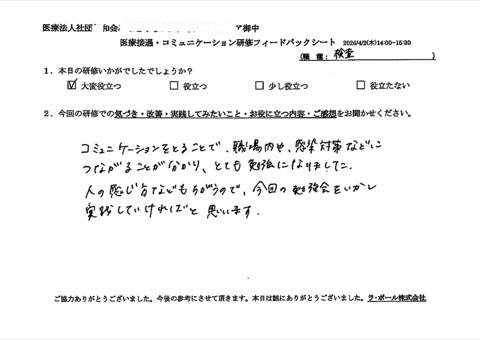 医療法人社団 和会 ア御中
医療接遇・コミュニケーション研修フィードバックシート 2026/4/2(木)14:00~15:30
(職種: 検査)
1.本日の研修いかがでしたでしょうか？
☑ 大変役立つ □ 役立つ □ 少し役立つ □ 役立たない
2.今回の研修での気づき・改善・実践してみたいこと・お役に立つ内容・ご感想をお聞かせください。
コミュニケーションをとることで、職場内や、感染対策などに
つながることが分かり、とても勉強になりました。
人の感じ方などもちがうので、今回の勉強会をいかし
実践していければと思います。
ご協力ありがとうございました。今後の参考にさせて頂きます。本日は誠にありがとうございました。ラ・ポール株式会社